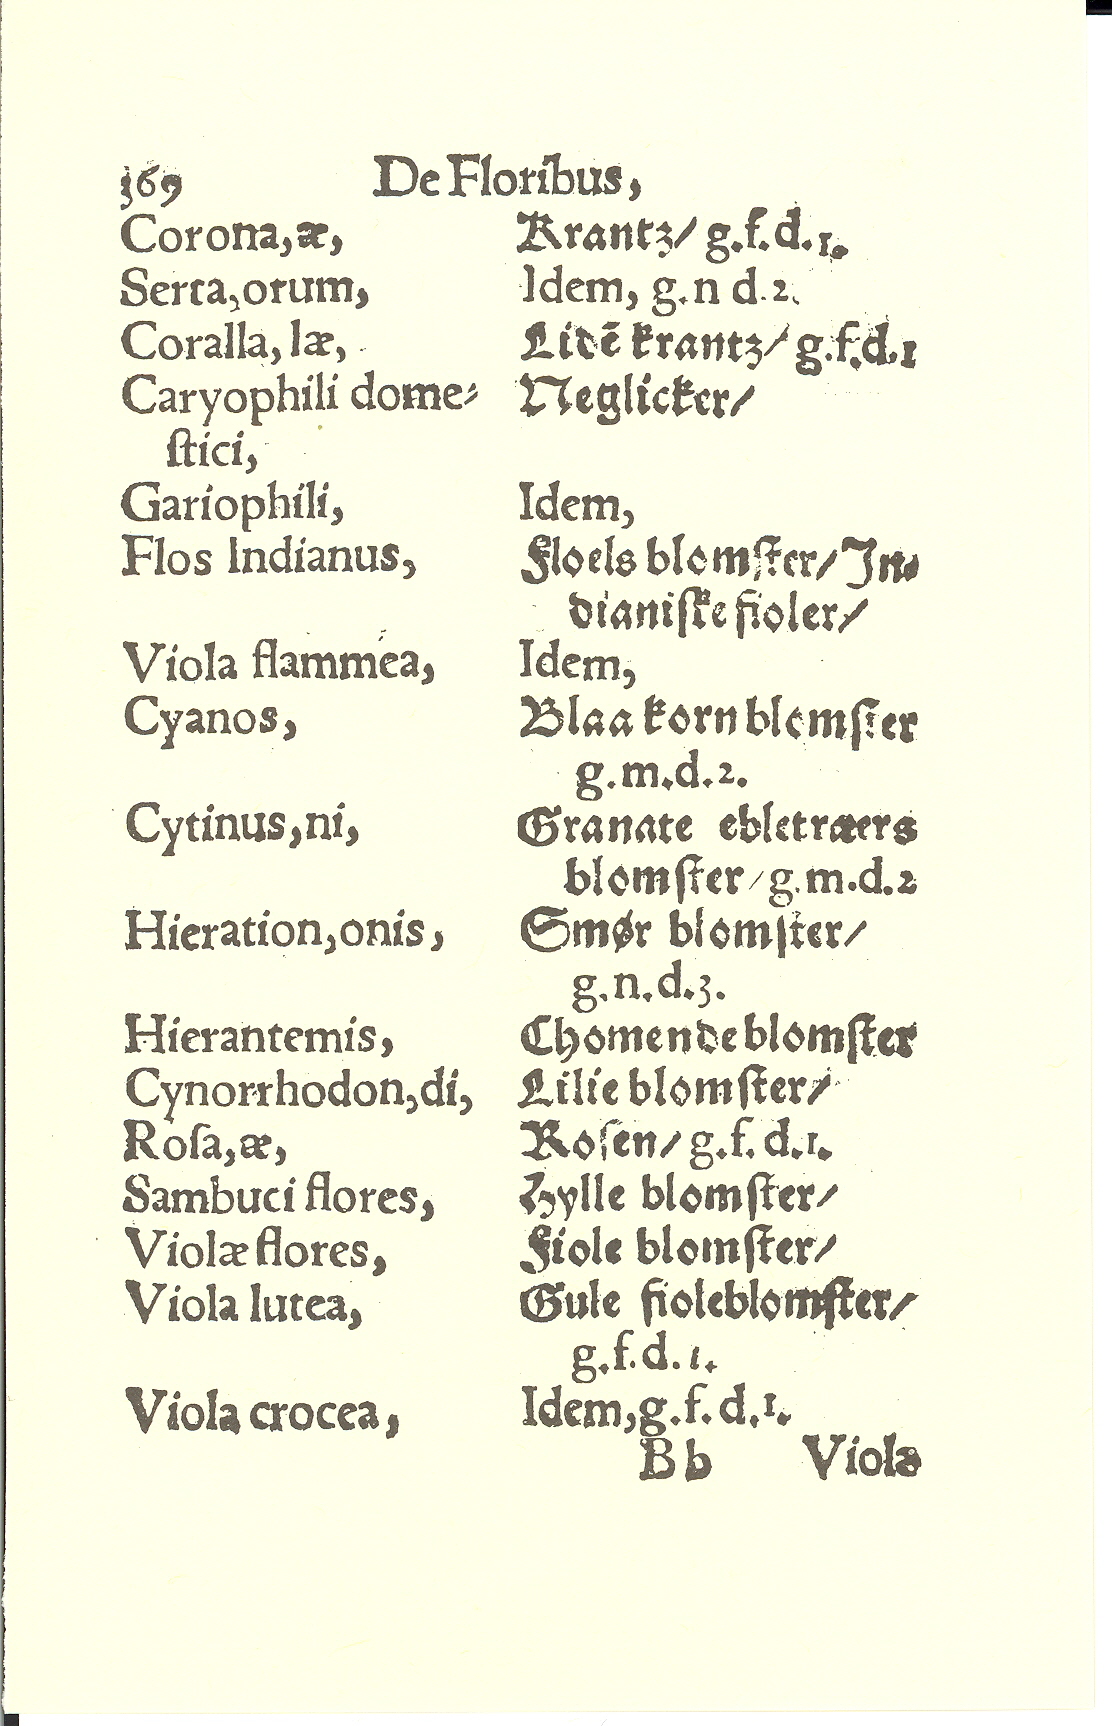 369 De Floribus,
Corona,æ, Krantz/ g.f.d.1.
Serta,orum, Idem, g.n d.2.
Coralla, læ, Lidē krantz/ g.f.d.1
Caryophili dome⸗ Neglicker/
ſtici,
Gariophili, Idem,
Flos Indianus, Floels blomſter/ Jn⸗
dianiſke fioler/
Viola flammea, Idem,
Cyanos, Blaa korn blomſter
g.m.d.2.
Cytinus,ni, Granate ebletræers
blomſter/ g.m.d.2
Hieration,onis, Smør blomſter/
g.n.d.3.
Hierantemis, Chomende blomſter
Cynorrhodon,di, Lilie blomſter/
Roſa,æ, Roſen/ g.f.d.1.
Sambuci flores, Hylle blomſter/
Violæ flores, Fiole blomſter/
Viola lutea, Gule fioleblomſter/
g.f.d.1.
Viola crocea, Idem,g.f.d.1.
Bb Viola